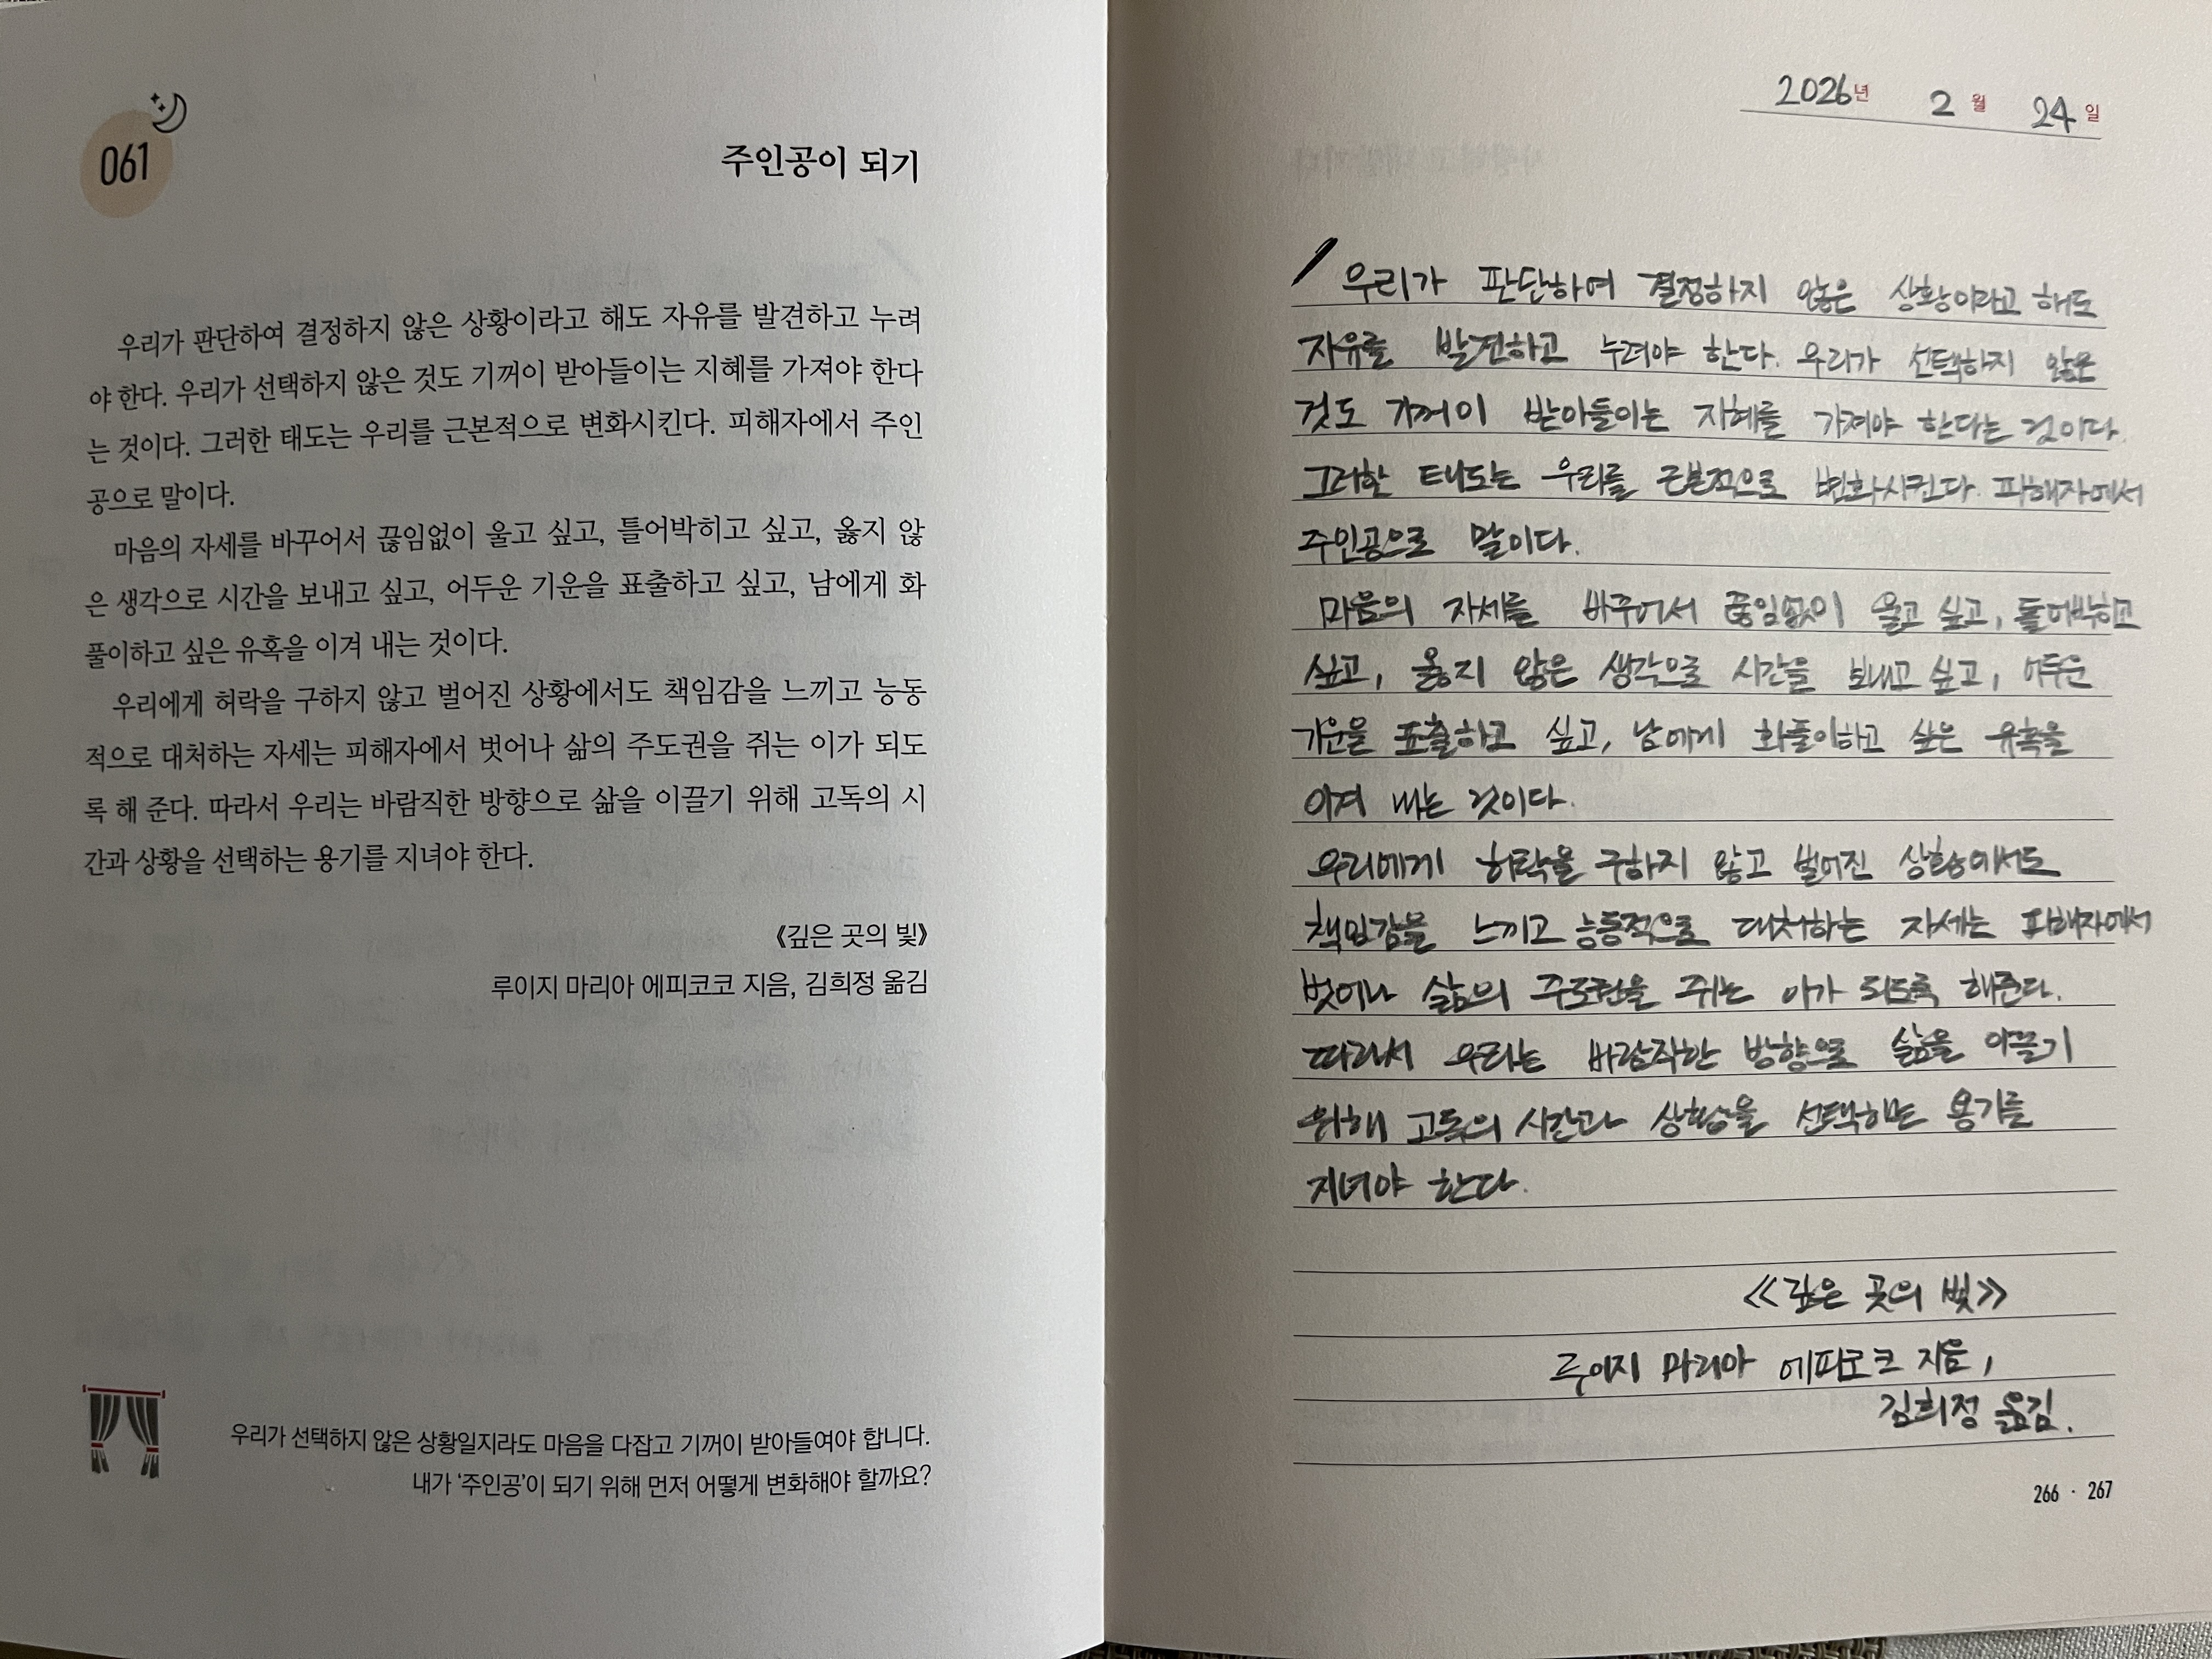 061
주인공이 되기
우리가 판단하여 결정하지 않은 상황이라고 해도 자유를 발견하고 누려
야 한다. 우리가 선택하지 않은 것도 기꺼이 받아들이는 지혜를 가져야 한다
는 것이다. 그러한 태도는 우리를 근본적으로 변화시킨다. 피해자에서 주인
공으로 말이다.
마음의 자세를 바꾸어서 끊임없이 울고 싶고, 틀어박히고 싶고, 옳지 않
은 생각으로 시간을 보내고 싶고, 어두운 기운을 표출하고 싶고, 남에게 화
풀이하고 싶은 유혹을 이겨 내는 것이다.
우리에게 허락을 구하지 않고 벌어진 상황에서도 책임감을 느끼고 능동
적으로 대처하는 자세는 피해자에서 벗어나 삶의 주도권을 쥐는 이가 되도
록 해 준다. 따라서 우리는 바람직한 방향으로 삶을 이끌기 위해 고독의 시
간과 상황을 선택하는 용기를 지녀야 한다.
《깊은 곳의 빛》
루이지 마리아 에피코코 지음, 김희정 옮김
우리가 선택하지 않은 상황일지라도 마음을 다잡고 기꺼이 받아들여야 합니다.
내가 ‘주인공’이 되기 위해 먼저 어떻게 변화해야 할까요?
2026년 2월 24일
우리가 판단하여 결정하지 않은 상황이라고 해도
자유를 발견하고 누려야 한다. 우리가 선택하지 않은
것도 기꺼이 받아들이는 지혜를 가져야 한다는 것이다.
그러한 태도는 우리를 근본적으로 변화시킨다. 피해자에서
주인공으로 말이다.
마음의 자세를 바꾸어서 끊임없이 울고 싶고, 틀어박히고
싶고, 옳지 않은 생각으로 시간을 보내고 싶고, 어두운
기운을 표출하고 싶고, 남에게 화풀이하고 싶은 유혹을
이겨 내는 것이다.
우리에게 허락을 구하지 않고 벌어진 상황에서도
책임감을 느끼고 능동적으로 대처하는 자세는 피해자에서
벗어나 삶의 주도권을 쥐는 이가 되도록 해준다.
따라서 우리는 바람직한 방향으로 삶을 이끌기
위해 고독의 시간과 상황을 선택하는 용기를
지녀야 한다.
《깊은 곳의 빛》
루이지 마리아 에피코코 지음,
김희정 옮김.
266 · 267